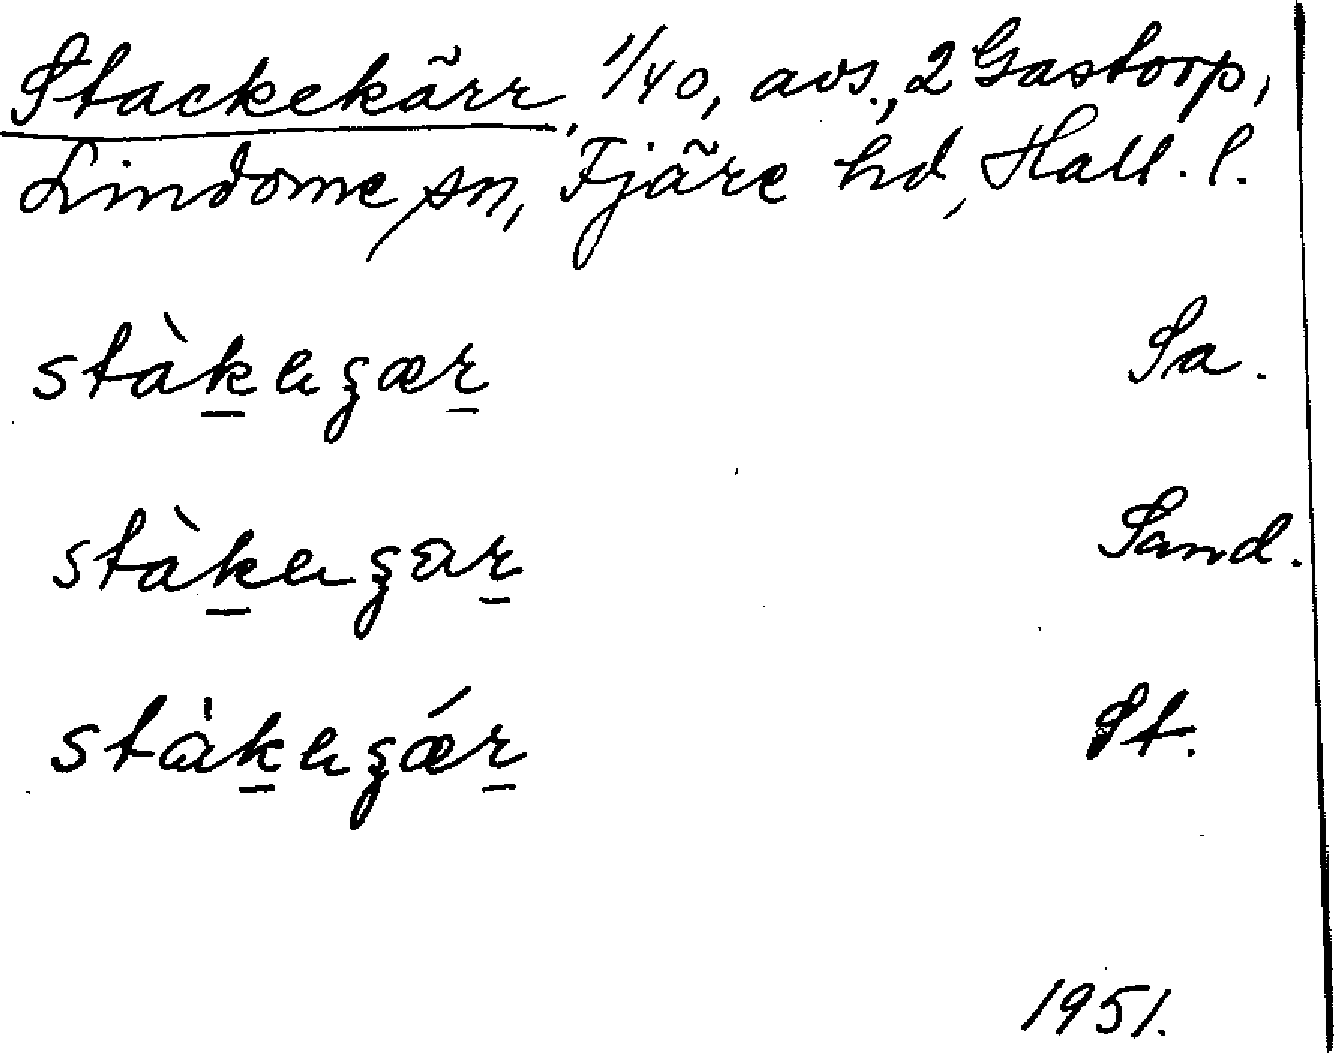 Stackekärr, 1/40, avs., 2 Gastorp,
Lindome sn, Fjäre hd, Hall. l.
stàkegær Sa.
stàkegar Sand.
stàkegǽr St.
1951.